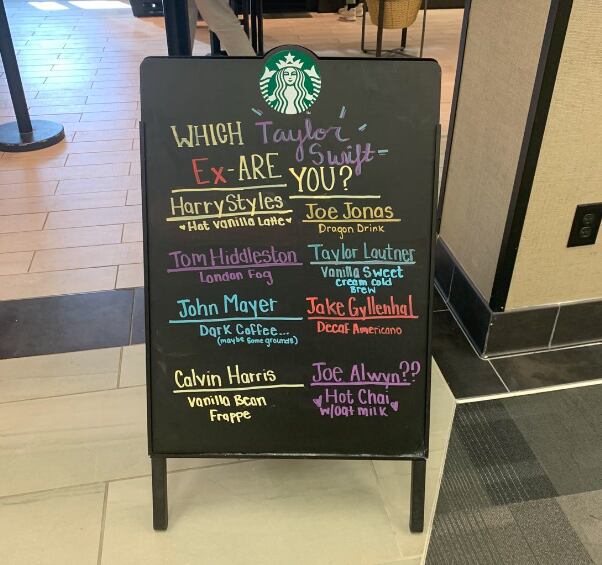 WHICH Taylor Swift
Ex-ARE YOU?
Harry Styles
Hot vanilla Latte
Joe Jonas
Dragon Drink
Tom Hiddleston
London Fog
Taylor Lautner
Vanilla Sweet
cream cold
Brew
John Mayer
Dark Coffee...
(maybe some grounds)
Jake Gyllenhal
Decaf Americano
Calvin Harris
Vanilla Bean
Frappe
Joe Alwyn??
Hot Chai
w/oat milk